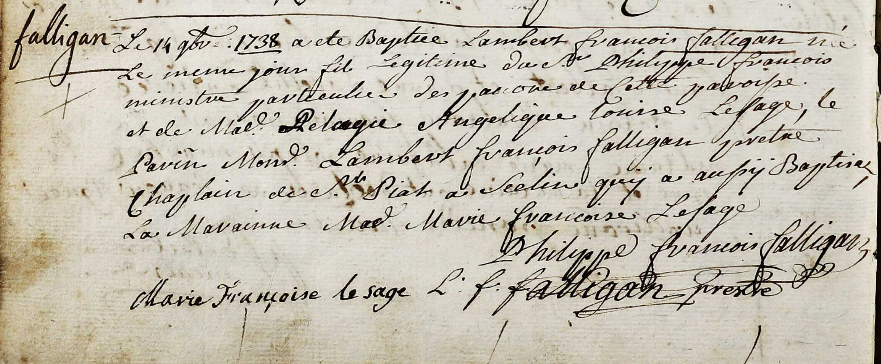 falligan
Le 14 9bre 1738 a ete Baptiee Lambert francois falligan né
Le meme jour fil Legitime du Sr Philippe francois
ministre particulier des de Cette paroisse
et de Mad. Pelagie Angelique Louise Lesage, le
Parin Mond. Lambert françois falligan pretre
Chaplain de St Piat a Seclin quÿ a aussÿ Baptise,
La Maraine Mad. Marie francoise Lesage
Philippe francois falligan
Marie Françoise le sage L. f. falligan prestre